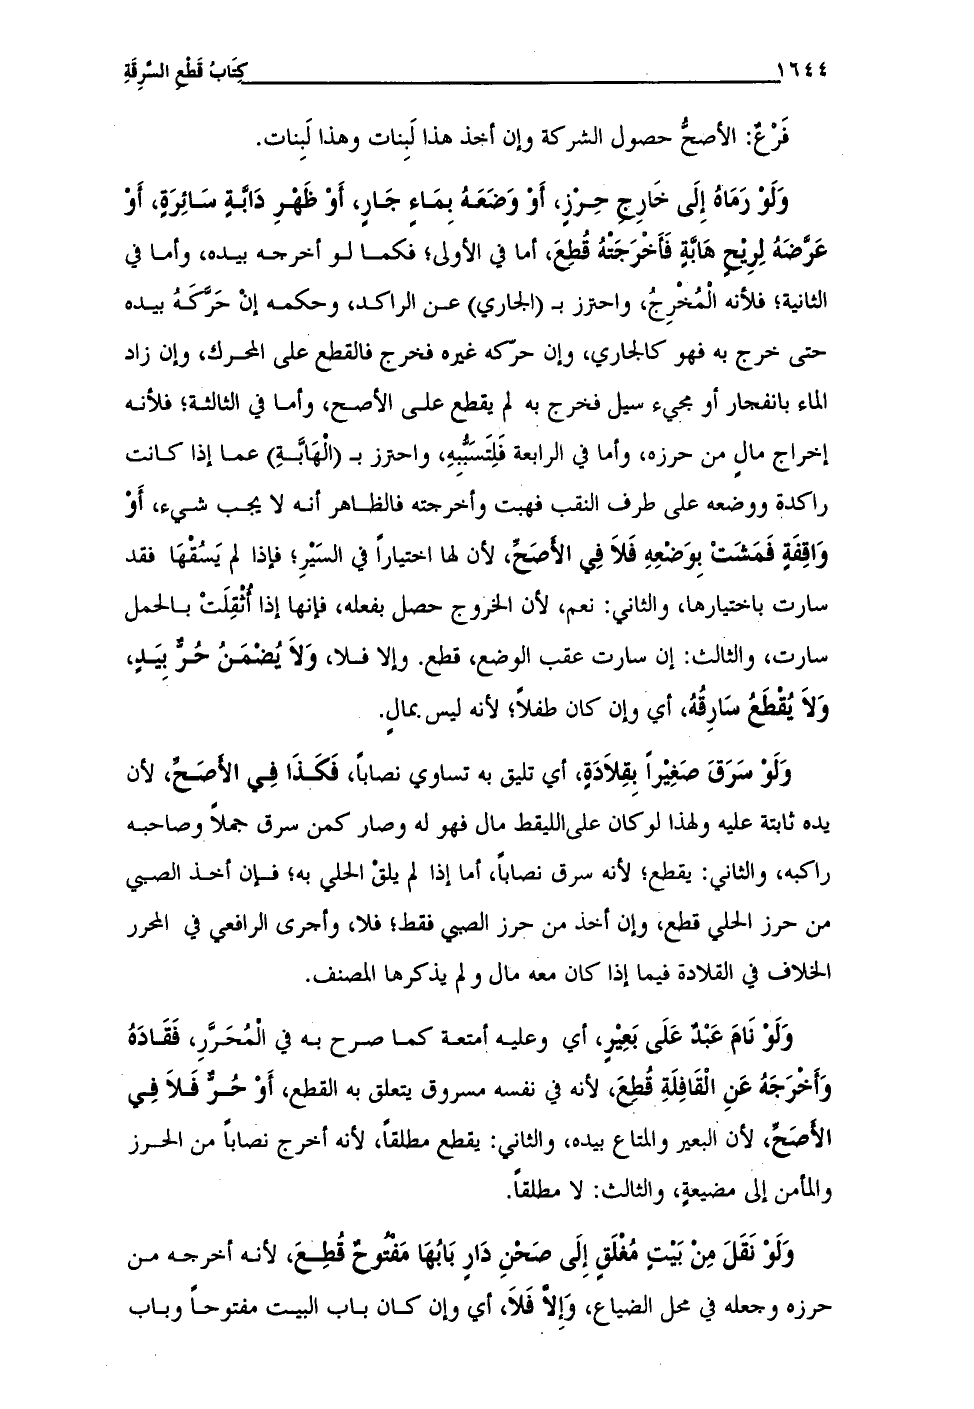 ١٦٤٤ كِتَابُ قَطْعِ السَّرِقَةِ
فَرْعٌ: الأصحُّ حصول الشركة وإن أخذ هذا لَبِنات وهذا لَبِنات.
وَلَوْ رَمَاهُ إِلَى خَارِجِ حِرْزٍ، أَوْ وَضَعَهُ بِمَاءٍ جَارٍ، أَوْ ظَهْرِ دَابَّةٍ سَائِرَةٍ، أَوْ
عَرَّضَهُ لِرِيْحٍ هَابَّةٍ فَأَخْرَجَتْهُ قُطِعَ، أما في الأولى؛ فكما لو أخرجه بيده، وأما في
الثانية؛ فلأنه الْمُخْرِجُ، واحترز بـ (الجاري) عن الراكد، وحكمه إنْ حَرَّكَهُ بيده
حتى خرج به فهو كالجاري، وإن حرّكه غيره فخرج فالقطع على المحرك، وإن زاد
الماء بانفجار أو مجيء سيل فخرج به لم يقطع على الأصح، وأما في الثالثة؛ فلأنه
إخراج مالٍ من حرزه، وأما في الرابعة فَلِتَسَبُّبِهِ، واحترز بـ (الْهَابَّةِ) عما إذا كانت
راكدة ووضعه على طرف النقب فهبت وأخرجته فالظاهر أنه لا يجب شيء، أَوْ
وَاقِفَةٍ فَمَشَتْ بِوَضْعِهِ فَلاَ فِي الأَصَحِّ، لأن لها اختياراً في السَيْرِ؛ فإذا لم يَسُقْهَا فقد
سارت باختيارها، والثاني: نعم، لأن الخروج حصل بفعله، فإنها إذا أُثْقِلَتْ بالحمل
سارت، والثالث: إن سارت عقب الوضع، قطع. وإلا فلا، وَلاَ يُضْمَنُ حُرٌّ بِيَدٍ،
وَلاَ يُقْطَعُ سَارِقُهُ، أي وإن كان طفلاً؛ لأنه ليس بمالٍ.
وَلَوْ سَرَقَ صَغِيْراً بِقِلاَدَةٍ، أي تليق به تساوي نصاباً، فَكَذَا فِي الأَصَحِّ، لأن
يده ثابتة عليه ولهذا لو كان على الليقط مال فهو له وصار كمن سرق جملاً وصاحبه
راكبه، والثاني: يقطع؛ لأنه سرق نصاباً، أما إذا لم يلقْ الحلي به؛ فإن أخذ الصبي
من حرز الحلي قطع، وإن أخذ من حرز الصبي فقط؛ فلا، وأجرى الرافعي في المحرر
الخلاف في القلادة فيما إذا كان معه مال و لم يذكرها المصنف.
وَلَوْ نَامَ عَبْدٌ عَلَى بَعِيْرٍ، أي وعليه أمتعة كما صرح به في الْمُحَرَّرِ، فَقَادَهُ
وَأَخْرَجَهُ عَنِ الْقَافِلَةِ قُطِعَ، لأنه في نفسه مسروق يتعلق به القطع، أَوْ حُرٌّ فَلاَ فِي
الأَصَحِّ، لأن البعير والمتاع بيده، والثاني: يقطع مطلقاً، لأنه أخرج نصاباً من الحرز
والمأمن إلى مضيعةٍ، والثالث: لا مطلقاً.
وَلَوْ نَقَلَ مِنْ بَيْتٍ مُغْلَقٍ إِلَى صَحْنِ دَارٍ بَابُهَا مَفْتُوحٌ قُطِعَ، لأنه أخرجه من
حرزه وجعله في محل الضياع، وَإِلاَّ فَلاَ، أي وإن كان باب البيت مفتوحاً وباب